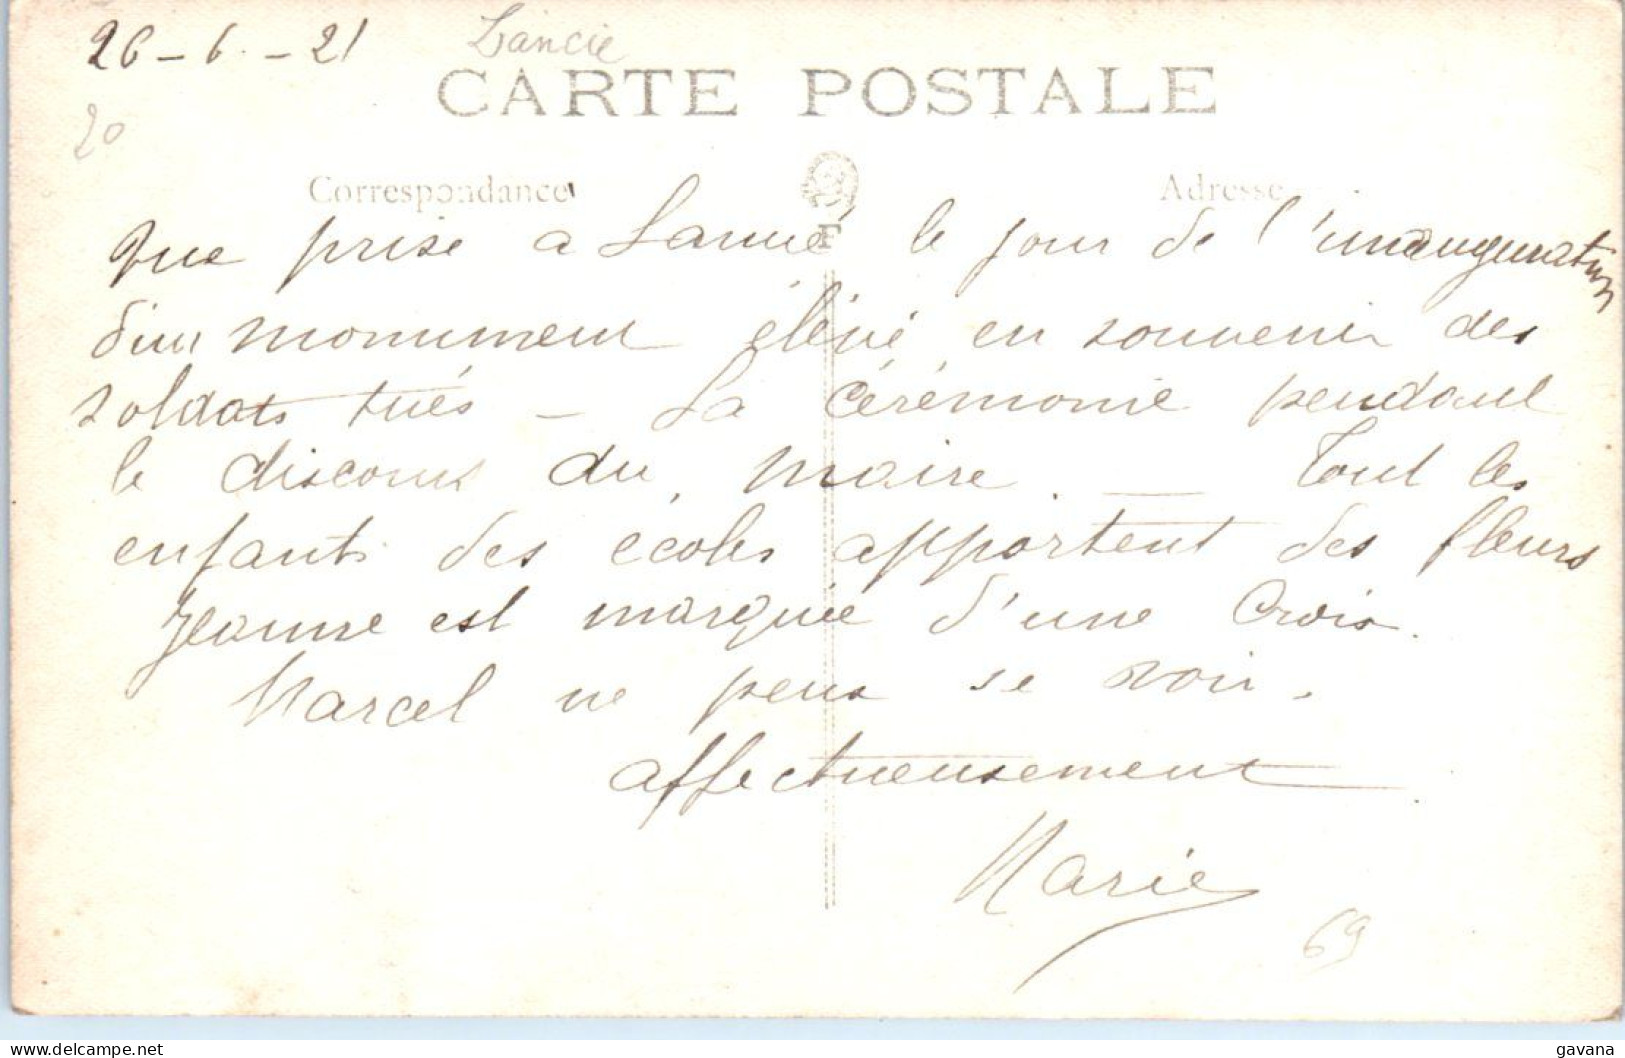 26-6-21 Lancie
CARTE POSTALE
20
Correspondance
Adresse
F
Vue prise a Lancié le jour de l'inauguration
d'un monument élévé en souvenir des
soldats tués - La cérémonie pendant
le discours du maire. - Tout les
enfants des écoles apportent des fleurs
Jeanne est marquée d'une Croix.
Marcel ne peux se voir.
affectueusement
Marie
69
gavana